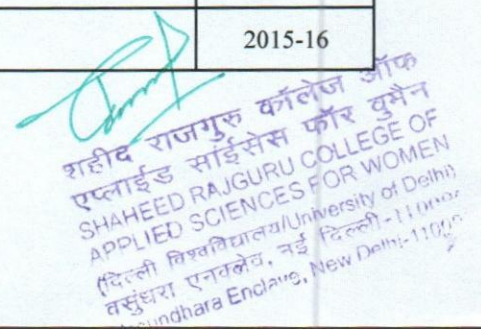 2015-16
शहीद राजगुरु कॉलेज ऑफ
एप्लाईड साईसेस फॉर वुमैन
SHAHEED RAJGURU COLLEGE OF
APPLIED SCIENCES FOR WOMEN
(दिल्ली विश्वविद्यालय/University of Delhi)
वसुंधरा एनक्लेव, नई दिल्ली-11009
Enclave, New Delhi-11009